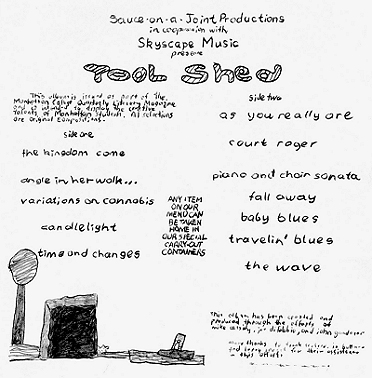 Sauce-on-a-Joint Productions
in cooperation with
Skyscape Music
presents
TOOL Shed
This album is issued as part of the
Manhattan College Quarterly Literary Magazine
and is intended to display the creative
talents of Manhattan Students. All selections
are original compositions.
side one
the kingdom come
angle in her walk...
variations on cannabis
candlelight
time and changes
ANY ITEM
ON OUR
MENU CAN
BE TAKEN
HOME IN
OUR SPECIAL
CARRY-OUT
CONTAINERS
side two
as you really are
court roger
piano and choir sonata
fall away
baby blues
travelin' blues
the wave
This album has been created and
produced through the efforts of
and john
many thanks to
for their assistance
in this effort.